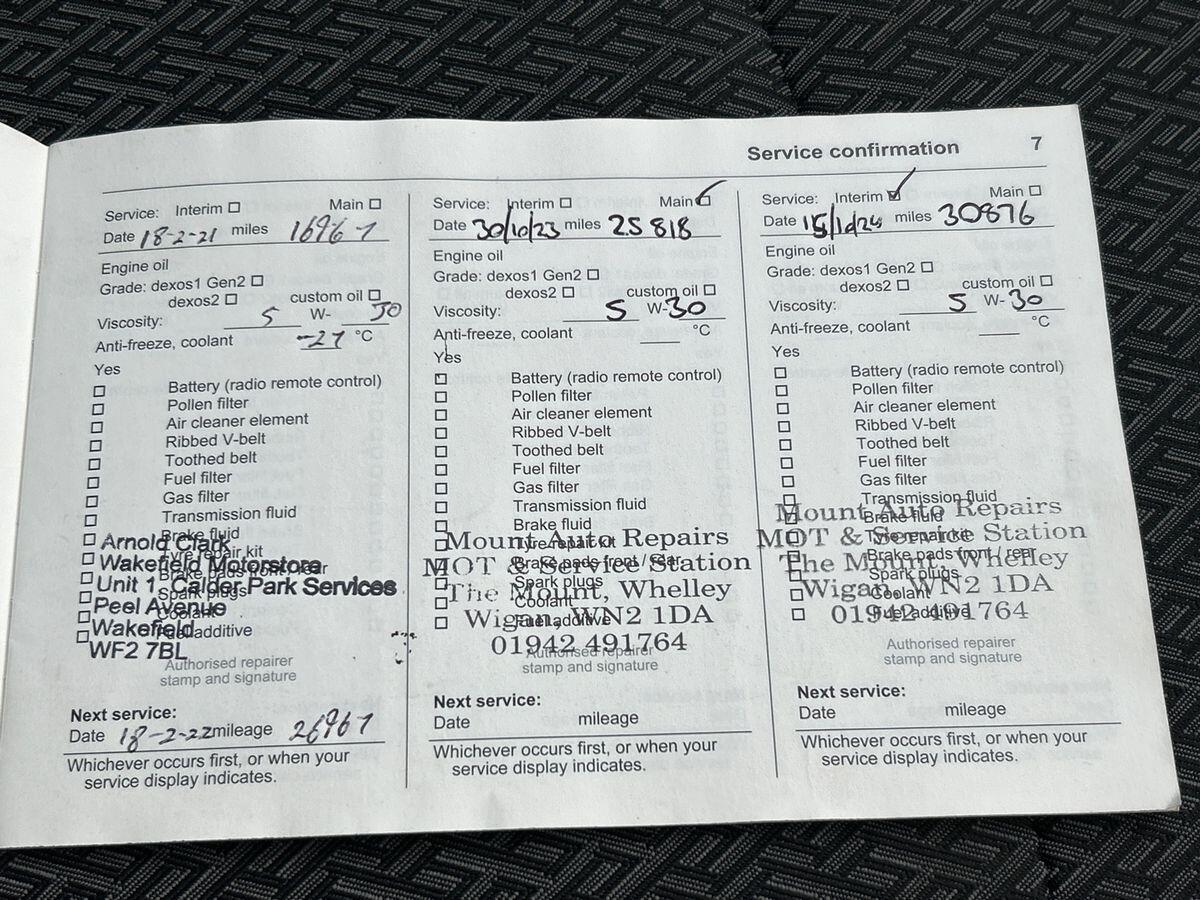 Service confirmation 7
Service: Interim Main
Date 18-2-21 miles 16967
Engine oil
Grade: dexos1 Gen2
dexos2 custom oil
Viscosity: 5 W- 30
Anti-freeze, coolant -27 °C
Yes
Battery (radio remote control)
Pollen filter
Air cleaner element
Ribbed V-belt
Toothed belt
Fuel filter
Gas filter
Transmission fluid
Brake fluid
Tyre repair kit
Brake pads front / rear
Spark plugs
Coolant
Fuel additive
Arnold Clark
Wakefield Motorstore
Unit 1, Calder Park Services
Peel Avenue
Wakefield
WF2 7BL
Authorised repairer
stamp and signature
Next service:
Date 18-2-22 mileage 26967
Whichever occurs first, or when your
service display indicates.
Service: Interim Main
Date 30/10/23 miles 25818
Engine oil
Grade: dexos1 Gen2
dexos2 custom oil
Viscosity: 5 W-30
Anti-freeze, coolant °C
Yes
Battery (radio remote control)
Pollen filter
Air cleaner element
Ribbed V-belt
Toothed belt
Fuel filter
Gas filter
Transmission fluid
Brake fluid
Tyre repair kit
Brake pads front / rear
Spark plugs
Coolant
Fuel additive
Mount Auto Repairs
MOT & Service Station
The Mount, Whelley
Wigan, WN2 1DA
01942 491764
Authorised repairer
stamp and signature
Next service:
Date mileage
Whichever occurs first, or when your
service display indicates.
Service: Interim Main
Date 15/10/24 miles 30876
Engine oil
Grade: dexos1 Gen2
dexos2 custom oil
Viscosity: 5 W-30
Anti-freeze, coolant °C
Yes
Battery (radio remote control)
Pollen filter
Air cleaner element
Ribbed V-belt
Toothed belt
Fuel filter
Gas filter
Transmission fluid
Brake fluid
Tyre repair kit
Brake pads front / rear
Spark plugs
Coolant
Fuel additive
Mount Auto Repairs
MOT & Service Station
The Mount, Whelley
Wigan, WN2 1DA
01942 491764
Authorised repairer
stamp and signature
Next service:
Date mileage
Whichever occurs first, or when your
service display indicates.